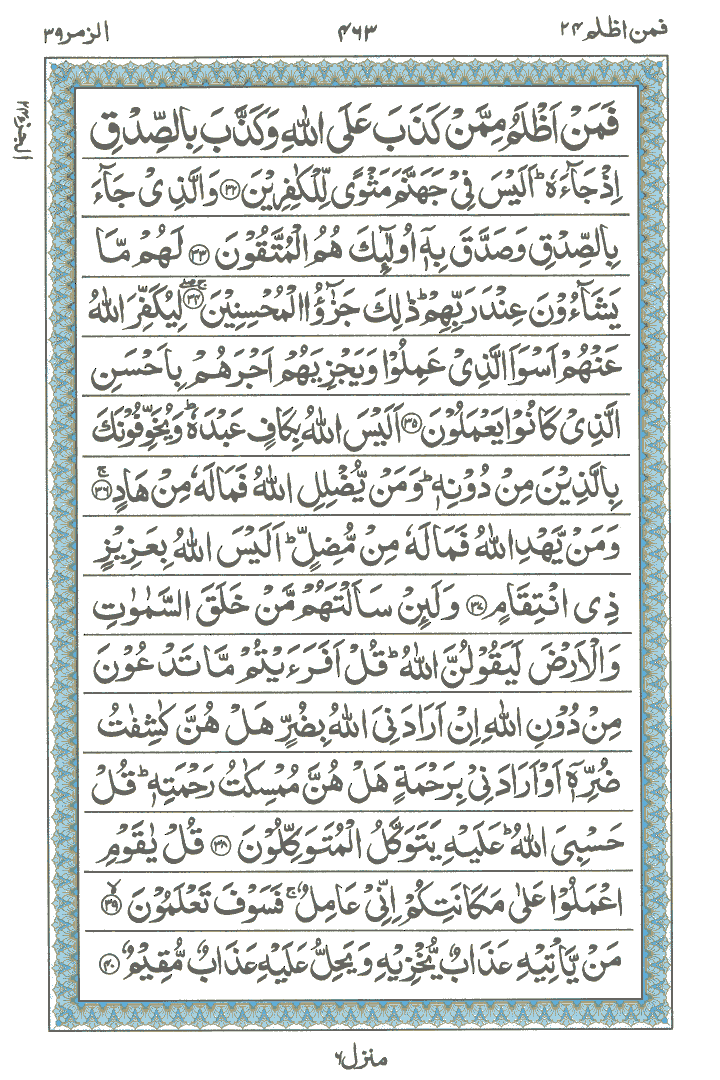 فمن اظلم ٢٤
٤٦٣
الزمر ٣٩
فَمَنۡ اَظۡلَمُ مِمَّنۡ كَذَبَ عَلَى اللّٰهِ وَكَذَّبَ بِالصِّدۡقِ
اِذۡ جَآءَهٗ ؕ اَلَيۡسَ فِىۡ جَهَنَّمَ مَثۡوًى لِّلۡكٰفِرِيۡنَ ﴿۳۲﴾ وَالَّذِىۡ جَآءَ
بِالصِّدۡقِ وَصَدَّقَ بِهٖۤ اُولٰٓٮِٕكَ هُمُ الۡمُتَّقُوۡنَ ﴿۳۳﴾ لَهُمۡ مَّا
يَشَآءُوۡنَ عِنۡدَ رَبِّهِمۡ ؕ ذٰ لِكَ جَزٰٓؤُا الۡمُحۡسِنِيۡنَ ۚۖ ﴿۳۴﴾ لِيُكَفِّرَ اللّٰهُ
عَنۡهُمۡ اَسۡوَاَ الَّذِىۡ عَمِلُوۡا وَيَجۡزِيَهُمۡ اَجۡرَهُمۡ بِاَحۡسَنِ
الَّذِىۡ كَانُوۡا يَعۡمَلُوۡنَ ﴿۳۵﴾ اَلَيۡسَ اللّٰهُ بِكَافٍ عَبۡدَهٗ ؕ وَيُخَوِّفُوۡنَكَ
بِالَّذِيۡنَ مِنۡ دُوۡنِهٖ ؕ وَمَنۡ يُّضۡلِلِ اللّٰهُ فَمَا لَهٗ مِنۡ هَادٍ ۚ ﴿۳۶﴾
وَمَنۡ يَّهۡدِ اللّٰهُ فَمَا لَهٗ مِنۡ مُّضِلٍّ ؕ اَلَيۡسَ اللّٰهُ بِعَزِيۡزٍ
ذِى انۡتِقَامٍ ﴿۳۷﴾ وَلَٮِٕنۡ سَاَلۡتَهُمۡ مَّنۡ خَلَقَ السَّمٰوٰتِ
وَالۡاَرۡضَ لَيَقُوۡلُنَّ اللّٰهُ ؕ قُلۡ اَفَرَءَيۡتُمۡ مَّا تَدۡعُوۡنَ
مِنۡ دُوۡنِ اللّٰهِ اِنۡ اَرَادَنِىَ اللّٰهُ بِضُرٍّ هَلۡ هُنَّ كٰشِفٰتُ
ضُرِّهٖۤ اَوۡ اَرَادَنِىۡ بِرَحۡمَةٍ هَلۡ هُنَّ مُمۡسِكٰتُ رَحۡمَتِهٖ ؕ قُلۡ
حَسۡبِىَ اللّٰهُ ؕ عَلَيۡهِ يَتَوَكَّلُ الۡمُتَوَكِّلُوۡنَ ﴿۳۸﴾ قُلۡ يٰقَوۡمِ
اعۡمَلُوۡا عَلٰى مَكَانَتِكُمۡ اِنِّىۡ عَامِلٌ ۚ فَسَوۡفَ تَعۡلَمُوۡنَ ۙ ﴿۳۹﴾
مَنۡ يَّاۡتِيۡهِ عَذَابٌ يُّخۡزِيۡهِ وَيَحِلُّ عَلَيۡهِ عَذَابٌ مُّقِيۡمٌ ﴿۴۰﴾
منزل ٦